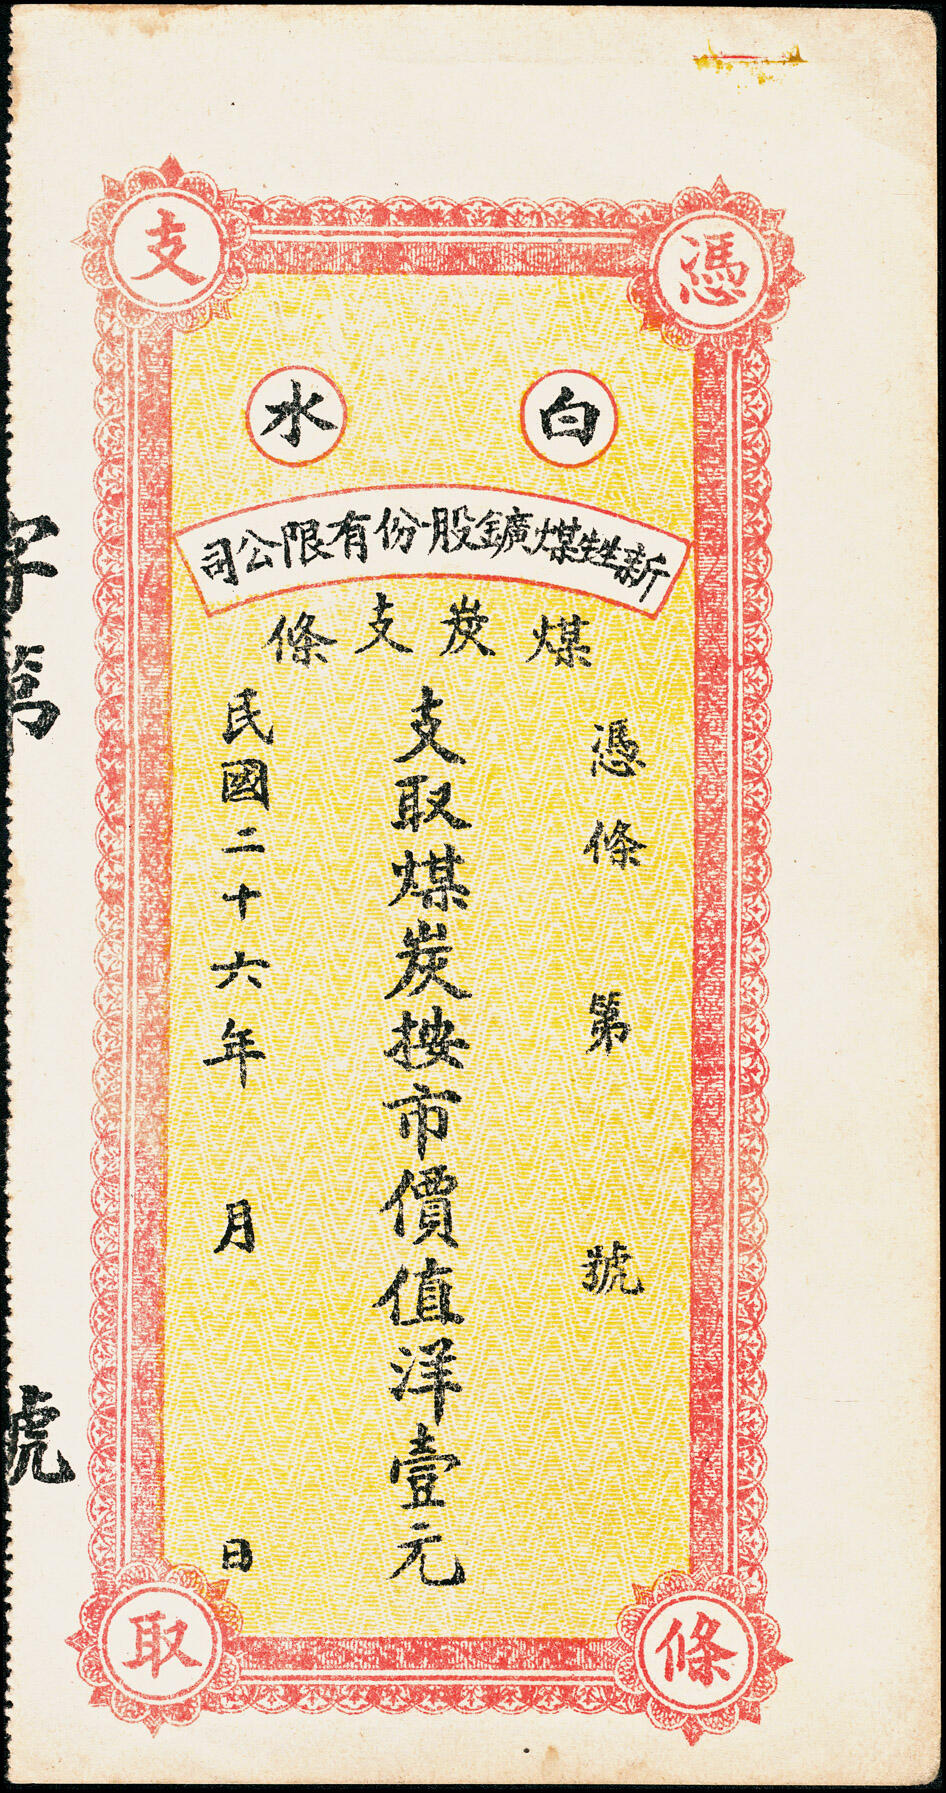 憑條
支取
白水
新甡煤鑛股份有限公司
煤炭支條
憑條第 號
支取煤炭按市價值洋壹元
民國二十六年 月 日
字第 號